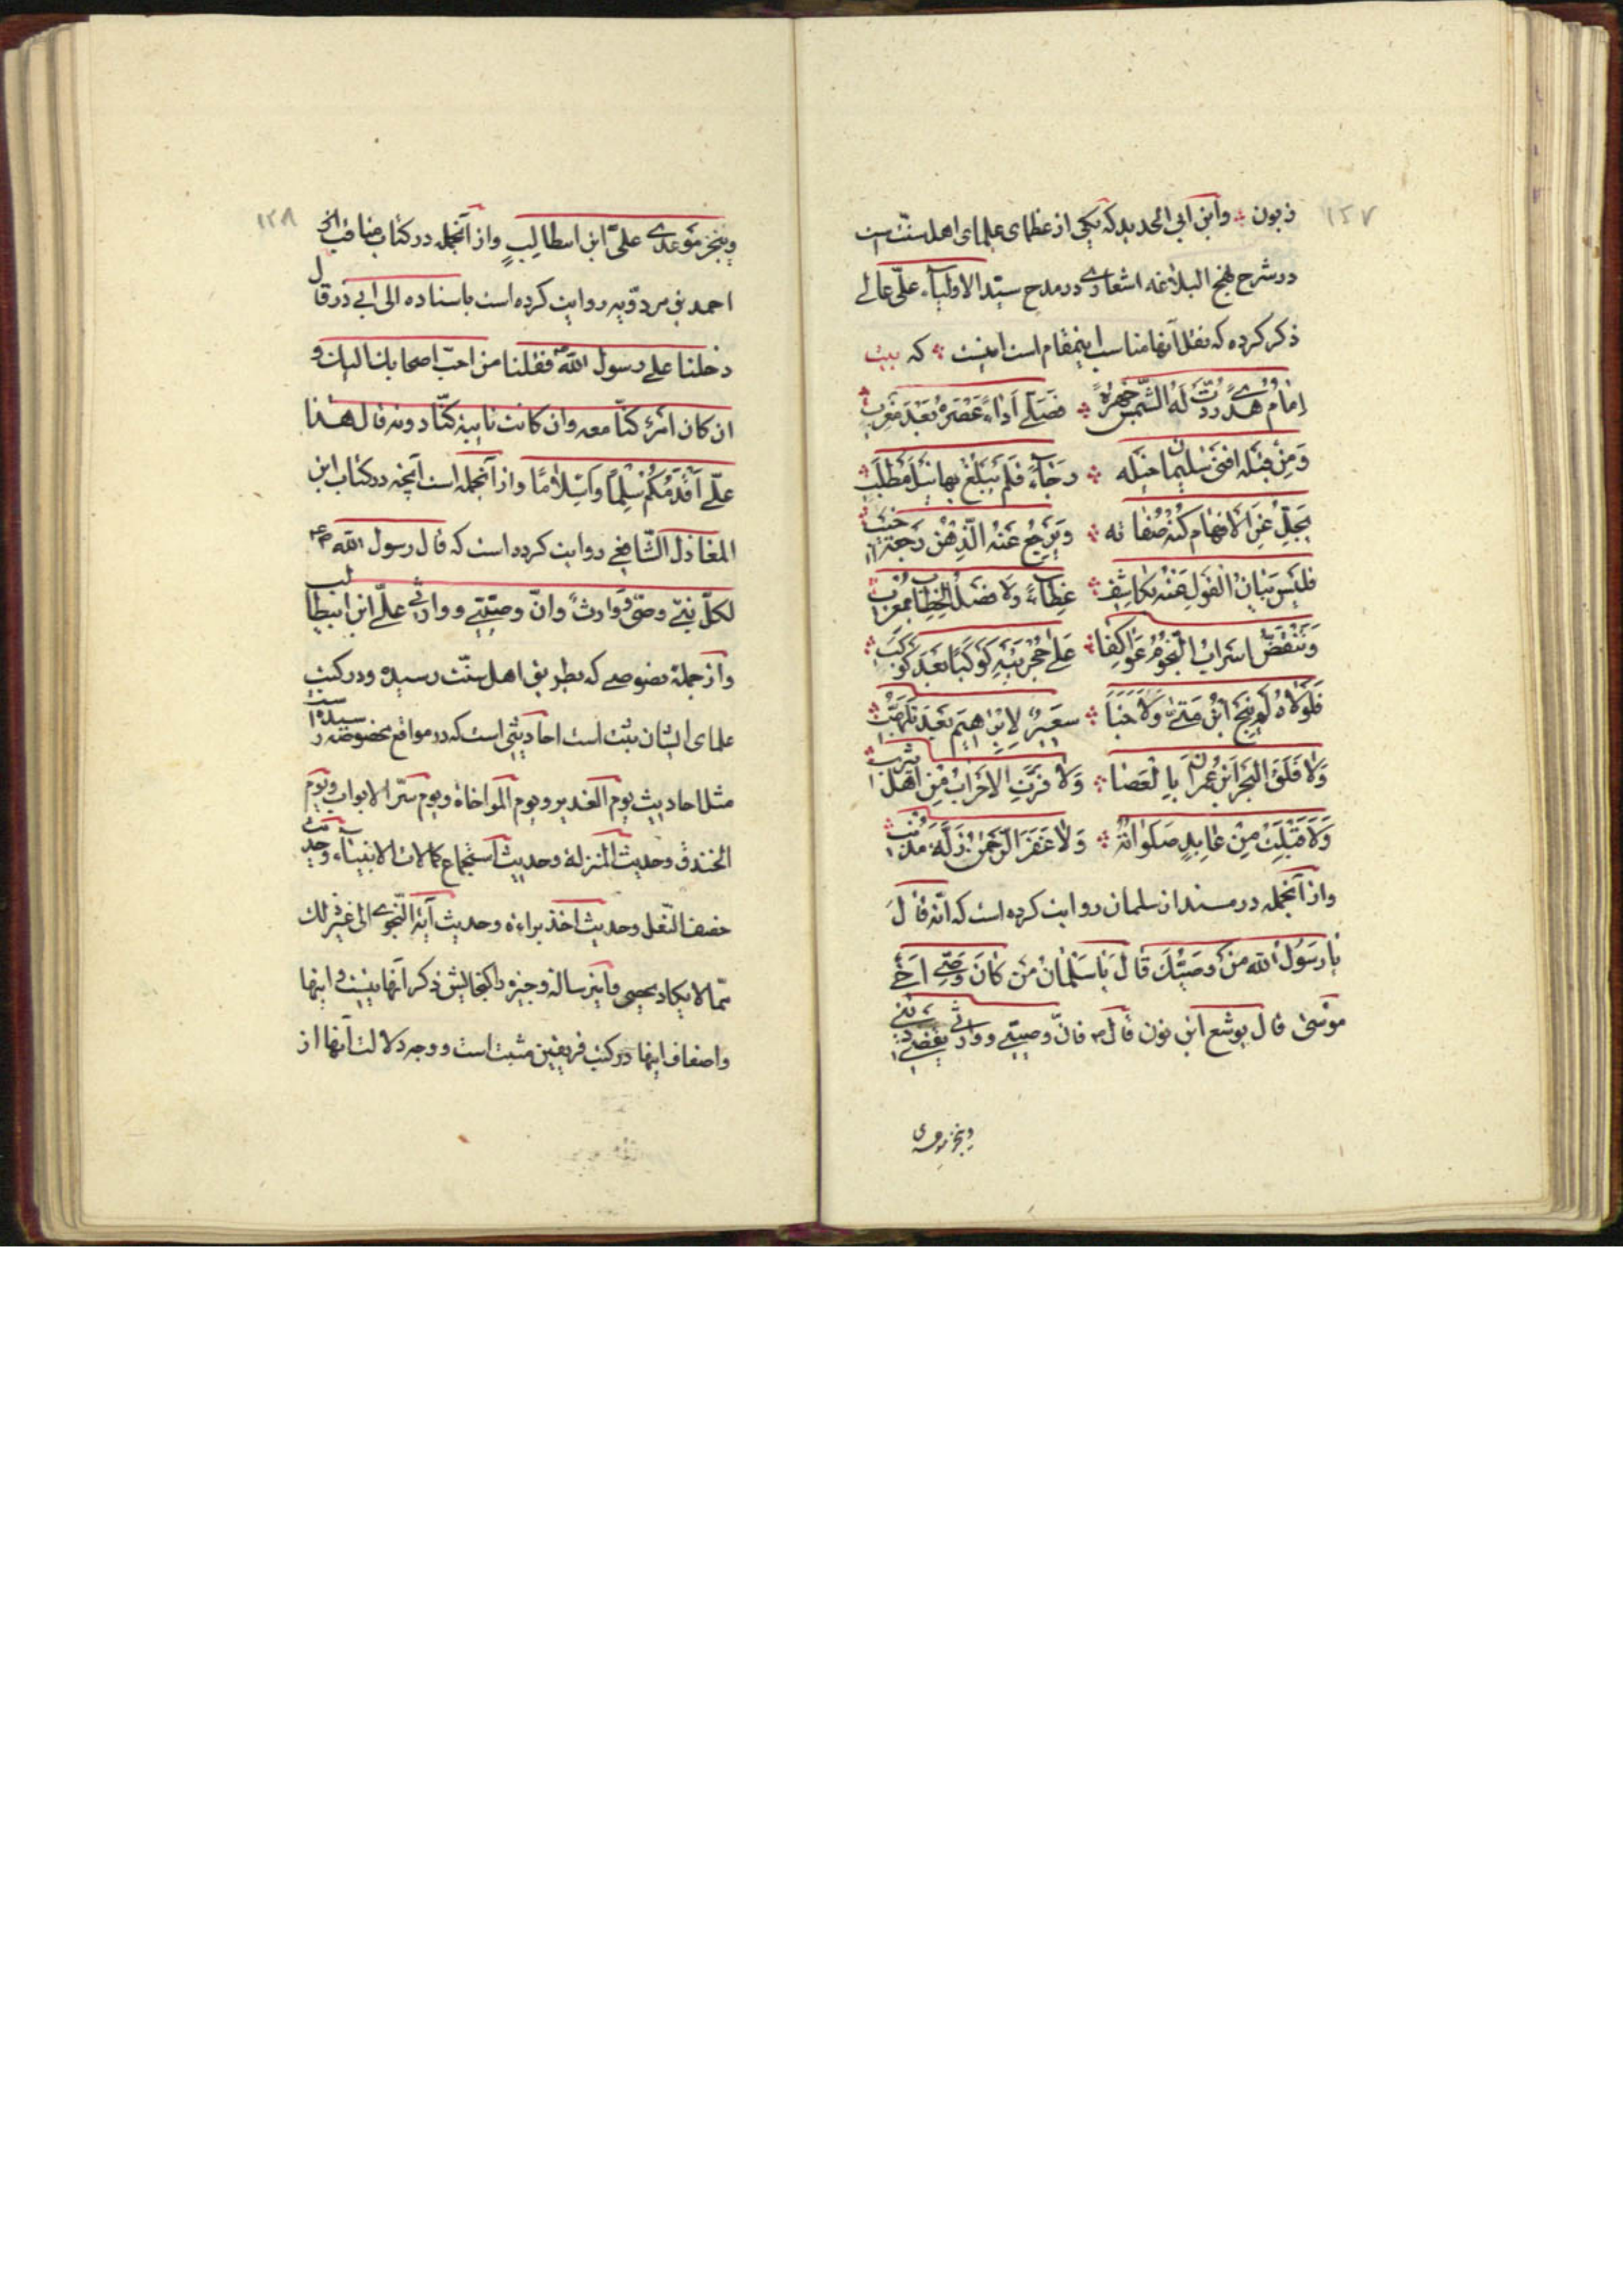 ۱۲۷
زبون وابن ابی الحدید که یکی از عظمای علمای اهل سنّت است
در شرح نهج البلاغه اشعاری در مدح سیّد الاولیآء علی عالی
ذکر کرده که نقل آنها مناسب اینمقام است اینست که بیت
اِمامُ هُدیً رُدَّت لَهُ الشَّمسُ جَهرَةً فَصَلّی اَداءً عَصرَهُ بَعدَ مَغرِبِ
وَمِن قَبلِهِ افنی سُلیمان خَیلَه رَجآءً فَلَم یَبلُغ بِها نَیلَ مَطلَبِ
یَجِلُّ عَنِ الاَفهامِ کُنهُ صِفاتِه وَیَرجِعُ عَنهُ الذِّهنُ رَجعَةَ اخیبِ
فَلَیسَ بَیانُ القَولِ عَنهُ بِکاشِفٍ غِطاءً وَلا فَصلُ الخِطابِ بمعربِ
وَتَنقَضُّ اَسرابُ النُّجُومِ عَواکِفا عَلی حُجرَتَیهِ کَوکَبًا بَعدَ کَوکَبِ
فَلَولاهُ لَم یَنجُ ابنُ مَتّی وَلا خَبا سَعیرٌ لِاِبراهِیمَ بَعدَ تَلَهُّبِ
وَلا فَلَقَ البَحرَ ابنُ عِمرانَ بِالعَصا وَلا فَرَّتِ الاَحزابُ مِن اَهلِ یثربِ
وَلا قُبِلَت مِن عابِدٍ صَلَواتُهُ وَلا غَفَرَ الرَّحمنُ زَلَّةَ مُذنِبِ
واز آنجمله در مسند از سلمان روایت کرده است که انّه قالَ
یا رَسُولَ اللّه مَن وَصِیُّکَ قالَ یا سَلمانُ مَن کانَ وَصِیَّ اَخی
مُوسی قال یوشع ابن نون قال ص فانّ وصیّی ووارثی یقضی دینی
وینجز موعدی
۱۲۸
وینجز موعدی علیّ ابن ابیطالبٍ واز آنجمله در کتاب مناقب
احمد بن مردویه روایت کرده است باسناده الی ابی ذر قال
دخلنا علی رسول اللّه ص فقلنا من احبّ اصحابک الیک و
ان کان امرٌ کنّا معه وان کانت نایبة کنّا دونه قال هذا
علّی اَقدَمُکُم سِلمًا وَاِسلامًا واز آنجمله است آنچه در کتاب ابن
المغازل الشّافعی روایت کرده است که قال رسول اللّه ص
لکلّ نبیّ وصیّ وَوارثٌ وانّ وصیّی ووارثی علّی ابن ابیطالب
واز جمله نصوصی که بطریق اهل سنّت رسیده و در کتب
علمای ایشان ثبت است احادیثی است که در مواقع مخصوصه رسیده است
مثل احادیث یوم الغدیر ویوم المواخاة ویوم سدّ الابواب ویوم
الخندق وحدیث المنزلة وحدیث استجماع کمالات الانبیآء وحدیث
خصف النّعل وحدیث اخذ براءة وحدیث آیة النّجوی الی غیر ذلک
ممّا لا یکاد یحصی واین رساله وجیزه را گنجایش ذکر آنها نیست و اینها
واضعاف اینها در کتب فریقین مثبت است ووجه دلالت آنها از